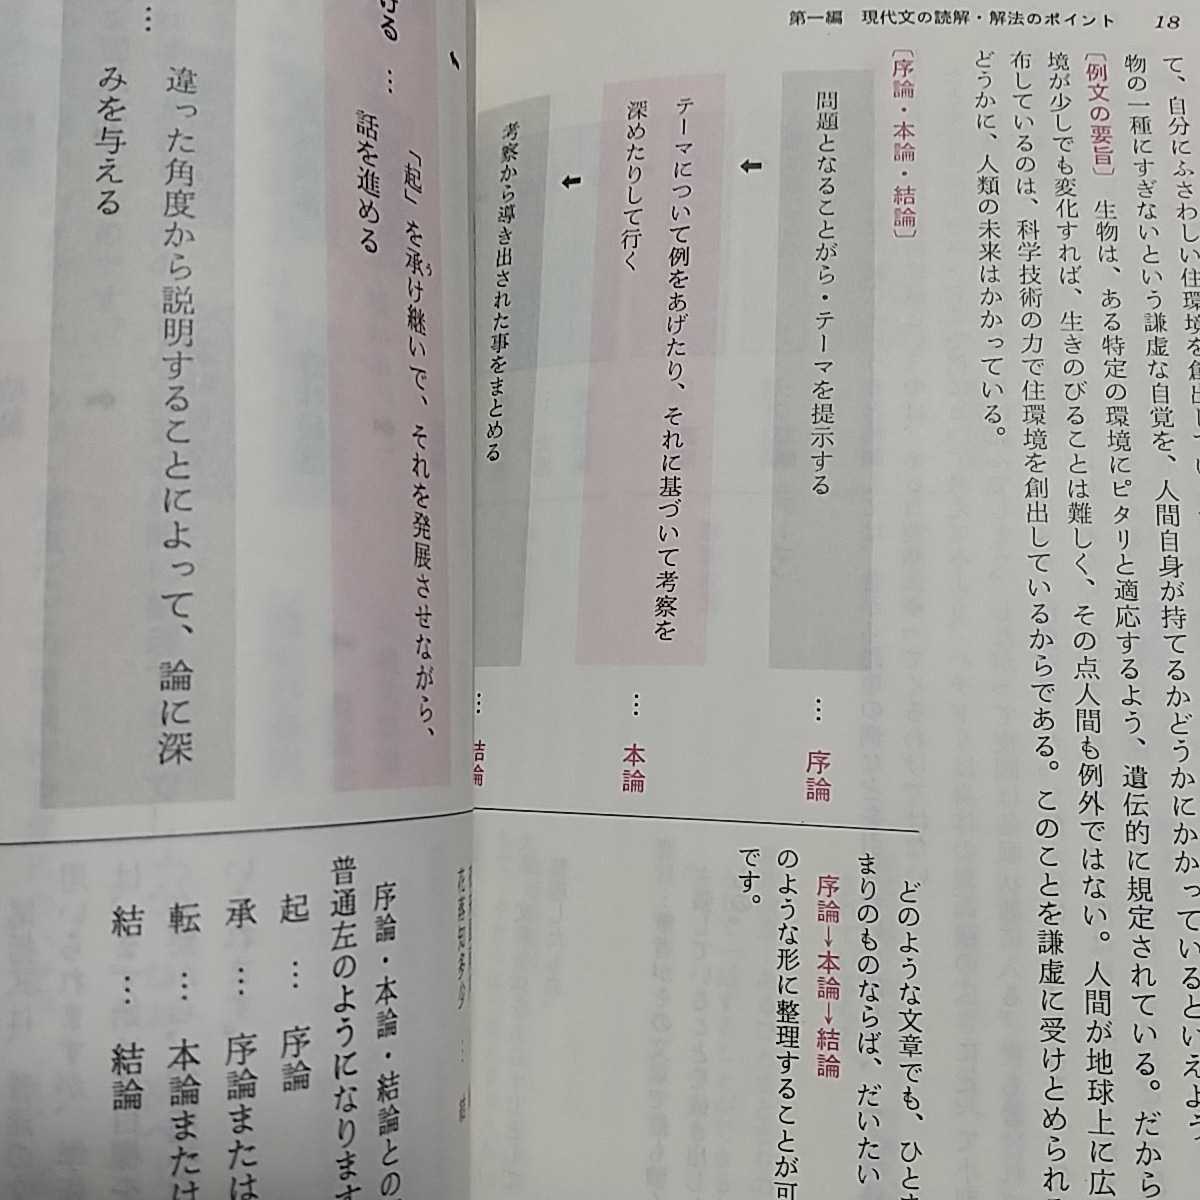 第一編　現代文の読解・解法のポイント　18
て、自分にふさわしい住環境を創出して
物の一種にすぎないという謙虚な自覚を、人間自身が持てるかどうかにかかっているといえよう。
［例文の要旨］　生物は、ある特定の環境にピタリと適応するよう、遺伝的に規定されている。だから
境が少しでも変化すれば、生きのびることは難しく、その点人間も例外ではない。人間が地球上に広
布しているのは、科学技術の力で住環境を創出しているからである。このことを謙虚に受けとめられ
どうかに、人類の未来はかかっている。
［序論・本論・結論］
問題となることがら・テーマを提示する　…　序論
テーマについて例をあげたり、それに基づいて考察を
深めたりして行く　…　本論
考察から導き出された事をまとめる　…　結論
どのような文章でも、ひと
まりのものならば、だいたい
序論→本論→結論
のような形に整理することが可
です。
ける　…
「起」を承け継いで、それを発展させながら、
う
話を進める
…
違った角度から説明することによって、論に深
みを与える
花落知多少　…　結
序論・本論・結論との
普通左のようになります
起　…　序論
承　…　序論または
転　…　本論または
結　…　結論